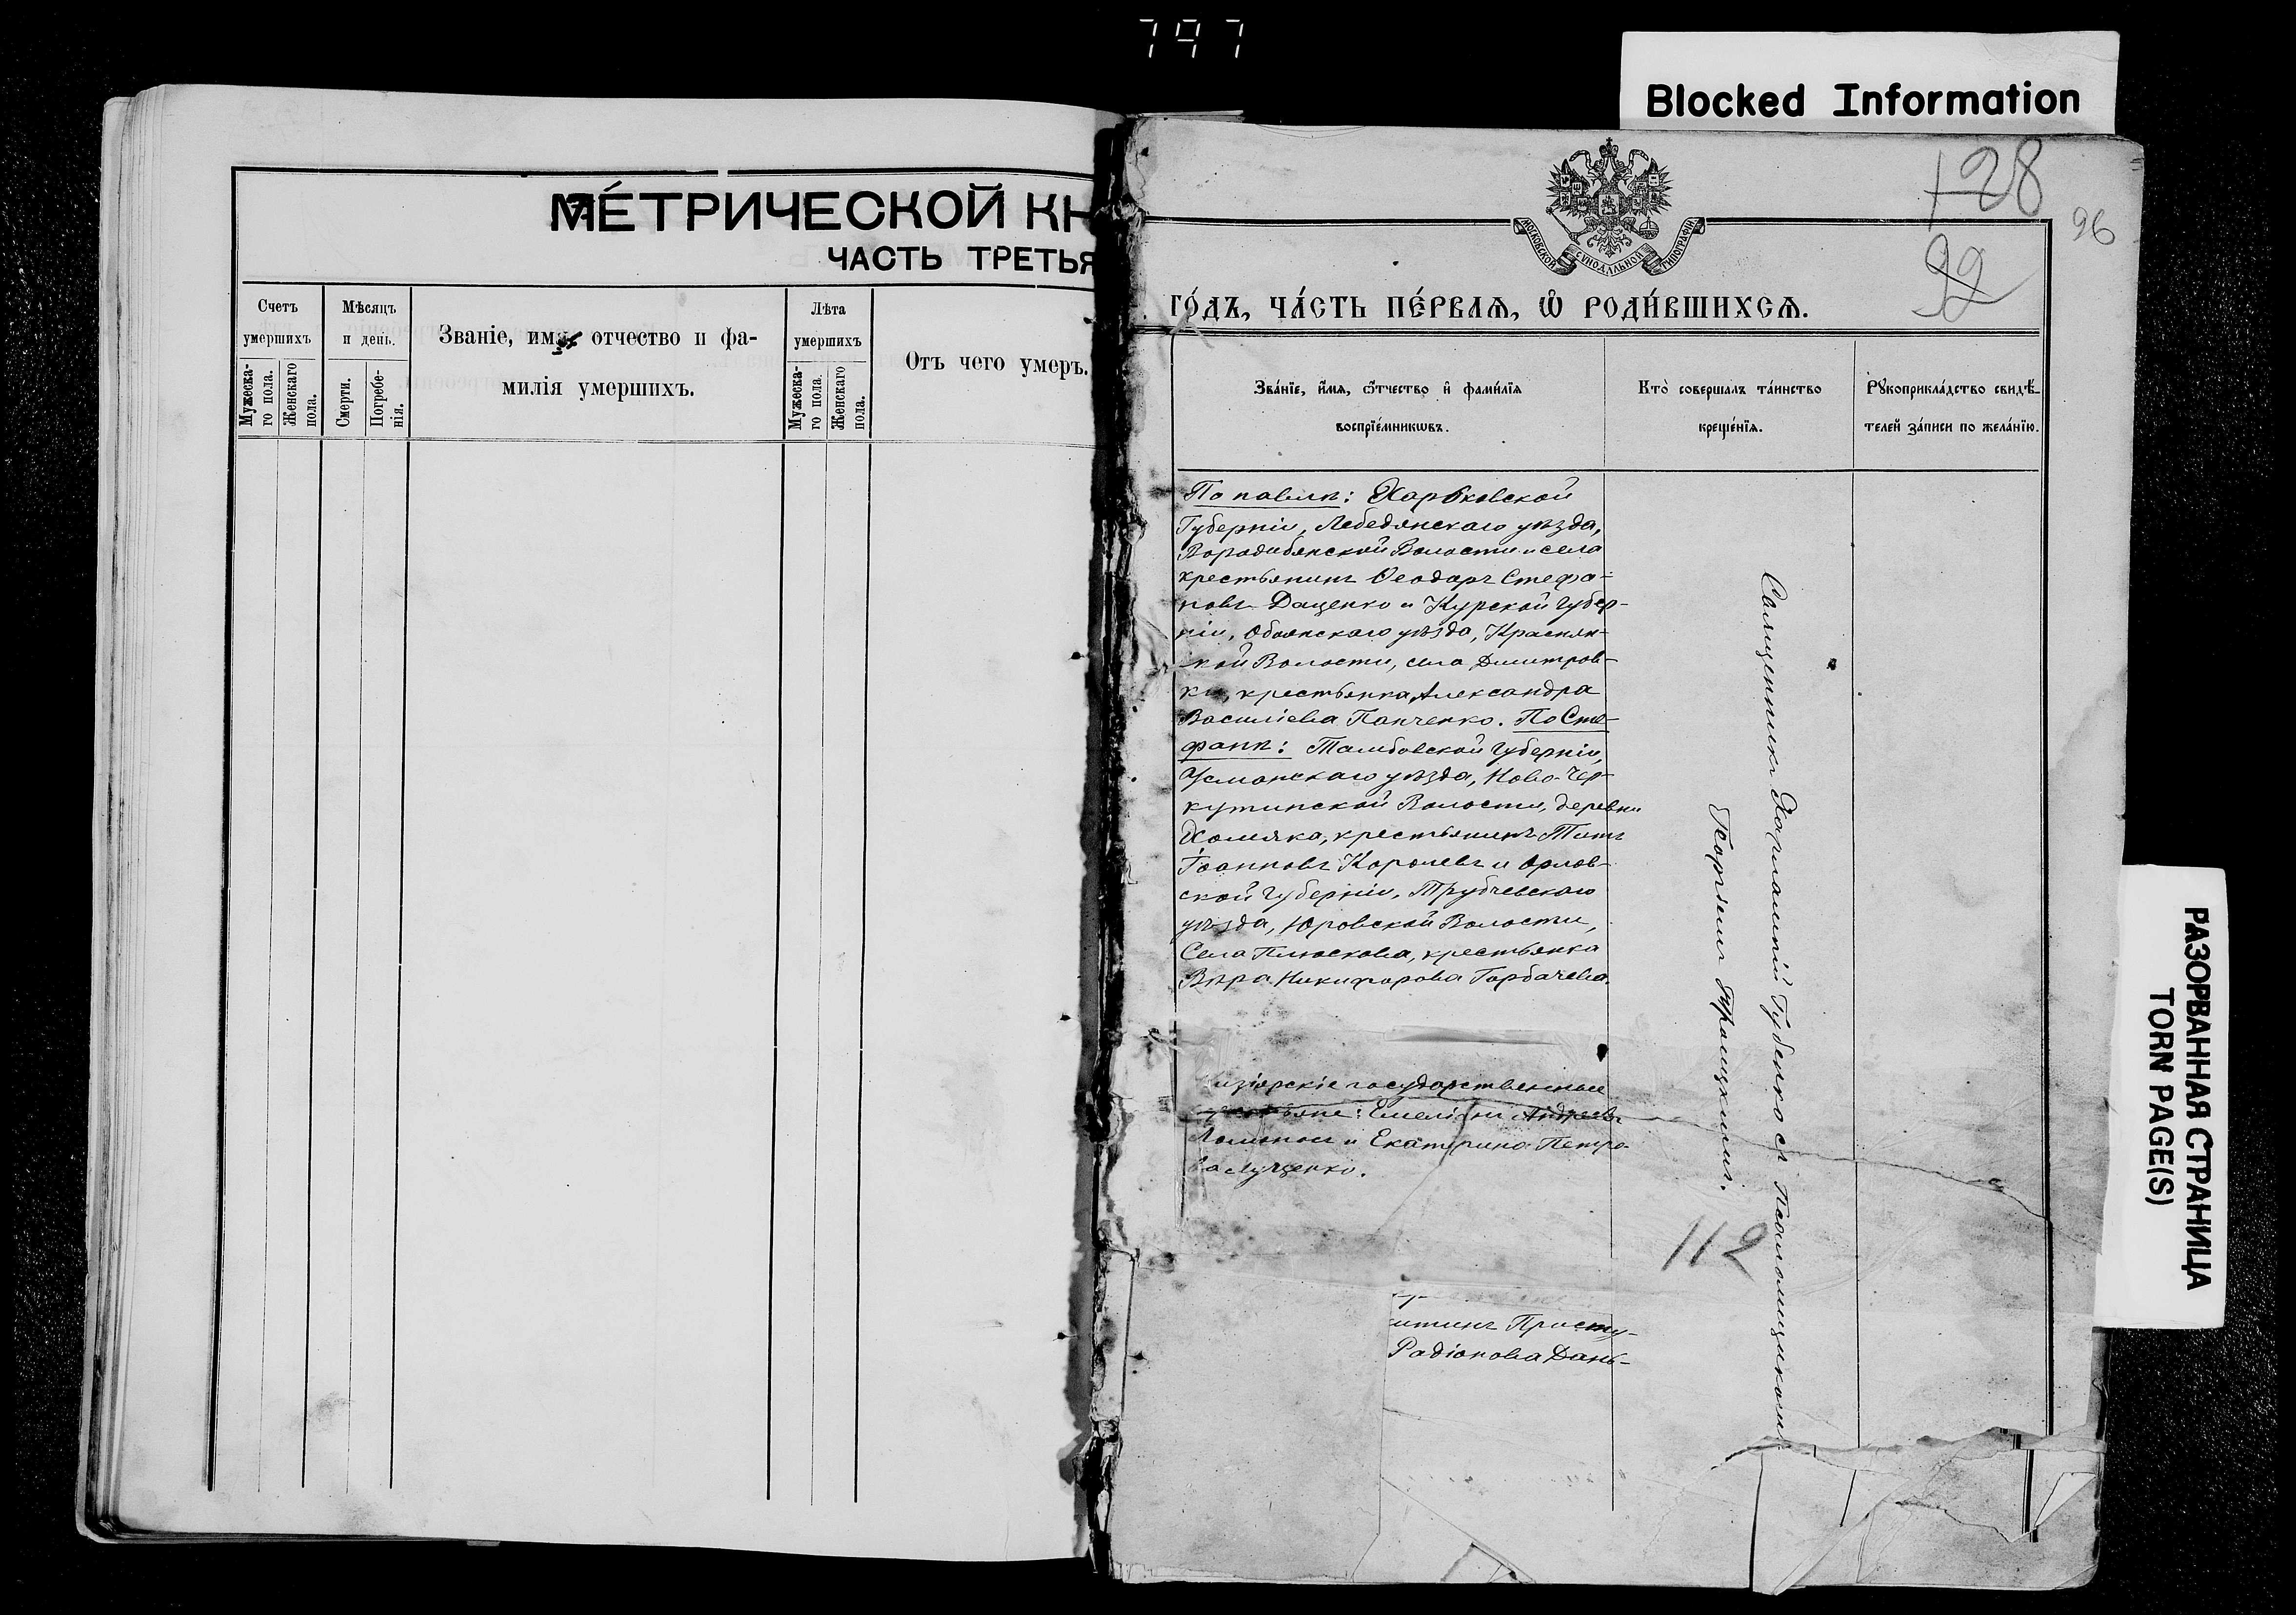 797
Blocked Information
МЕТРИЧЕСКОЙ КН
ЧАСТЬ ТРЕТЬЯ
Счетъ
умершихъ
Мужеска-
го пола.
Женскаго
пола.
Мѣсяцъ
и день.
Смерти.
Погребе-
нія.
Званіе, имя, отчество и фа-
милія умершихъ.
Лѣта
умершихъ
Мужеска-
го пола.
Женскаго
пола.
Отъ чего умеръ.
128
96
92
МОСКОВСКОЙ СѴНОДАЛЬНОЙ ТИПОГРАФІИ
ГО́ДЪ, ЧА́СТЬ ПЕ́РВАѦ, Ѡ҆ РОДИ́ВШИХСѦ.
Зва́нїе, и҆́мя, ѻ҆́тчество и҆ фами́лїя
воспрїе́мникѡвъ.
Кто̀ соверша́лъ та́инство
креще́нїя.
Рꙋкоприкла́дство свидѣ́-
телей за́писи по жела́нїю.
По павлѣ: Харьковской
Губерніи, Лебедянскаго уѣзда,
Волости и села
крестьянинъ Ѳеодоръ Стефа-
новъ Даценко и Курской Губер-
ніи, Обоянскаго уѣзда, Краснян-
кой Волости, села Димитров-
ки, крестьянка Александра
Василіева Панченко. По Сте-
фанѣ: Тамбовской Губерніи,
Усманскаго уѣзда, Ново-Чер-
кутинской Волости, деревни
крестьянинъ Титъ
Іоанновъ Королевъ и Орлов-
ской Губерніи, Трубчевскаго
уѣзда, Юровской Волости,
Села Плюскова, крестьянка
Вѣра Никифорова Горбачева.
государственные
Емеліанъ Андреевъ
и Екатерина Петро-
ва Луценко.
Просту-
Радіонова Дань-
Священникъ Харлампій Губенко съ Псаломщикомъ
Георгіемъ Троицкимъ.
112
РАЗОРВАННАЯ СТРАНИЦА
TORN PAGE(S)